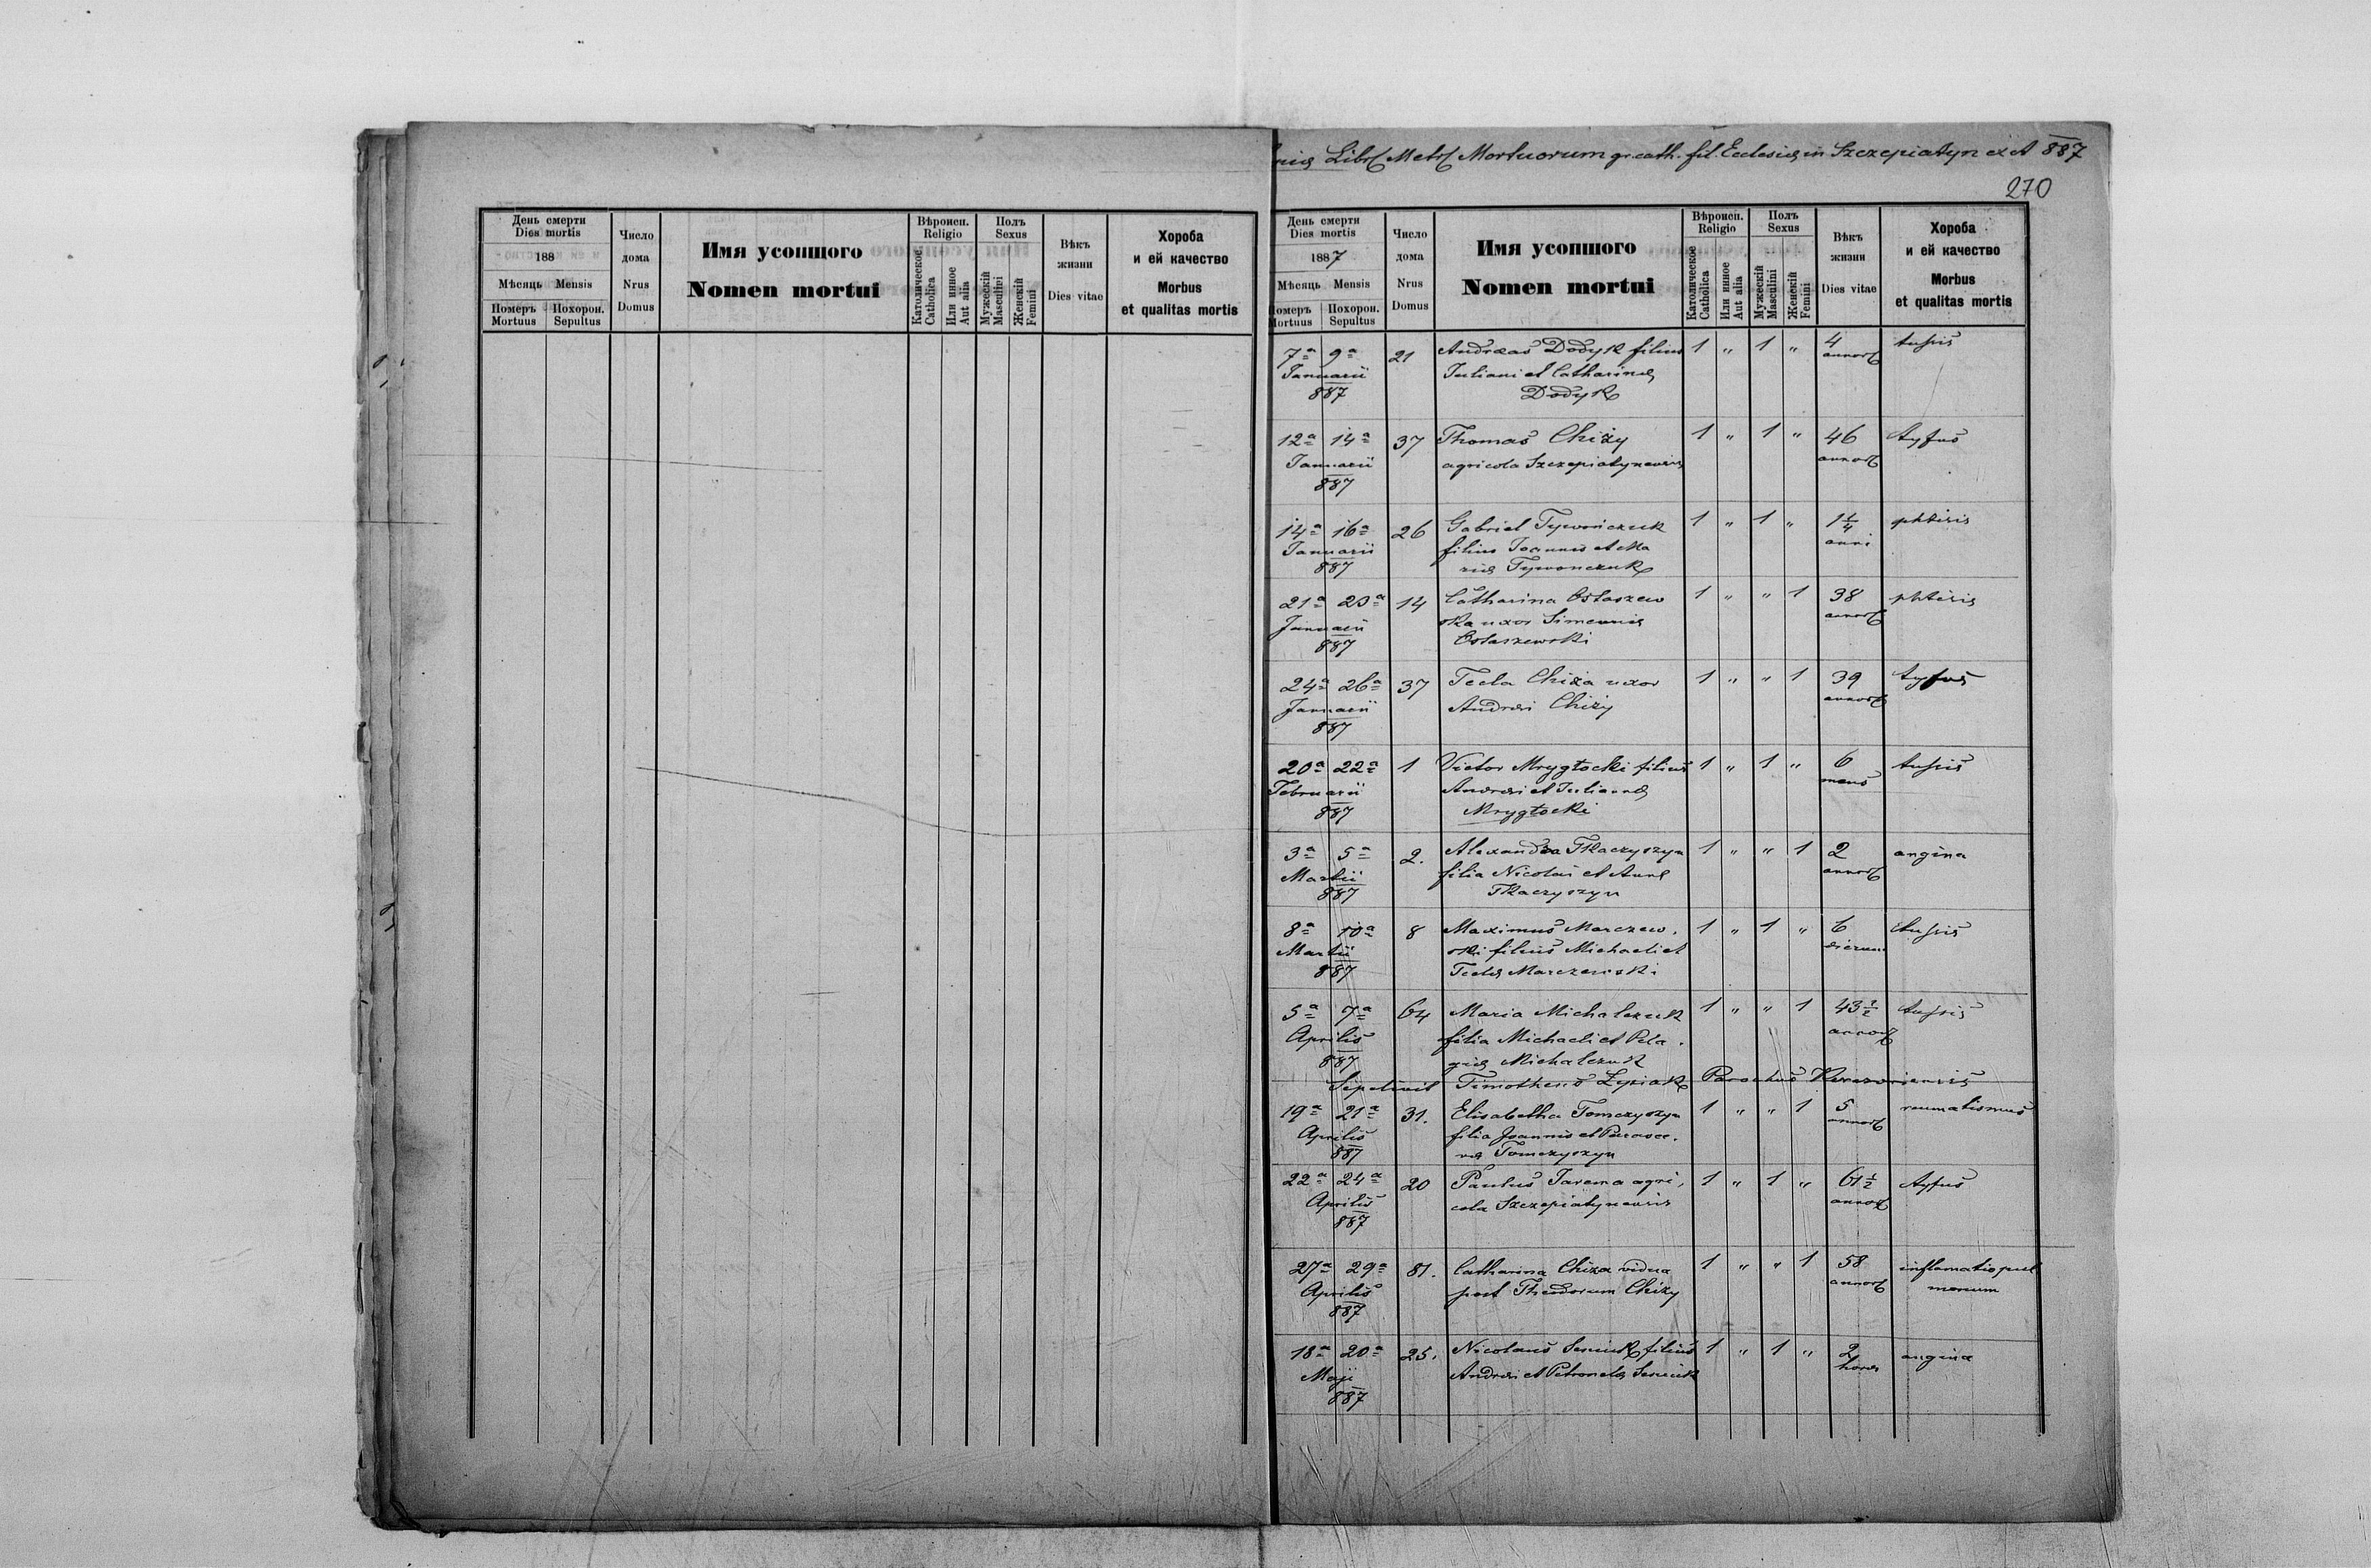 День смерти
Dies mortis
188
Мѣсяць Mensis
Померъ Mortuus
Похорон. Sepultus
Число дома
Nrus Domus
Имя усопшого
Nomen mortui
Вѣроисп.
Religio
Католическое Catholica
Или инное Aut alia
Полъ
Sexus
Мужескій Masculini
Женскій Femini
Вѣкъ жизни
Dies vitae
Хороба
и ей качество
Morbus
et qualitas mortis
Libr Metr Mortuorum gr. cath. fil. Ecclesiæ in Szczepiatyn ex A 887
270
День смерти
Dies mortis
1887
Мѣсяць Mensis
Померъ Mortuus
Похорон. Sepultus
Число дома
Nrus Domus
Имя усопшого
Nomen mortui
Вѣроисп.
Religio
Католическое Catholica
Или инное Aut alia
Полъ
Sexus
Мужескій Masculini
Женскій Femini
Вѣкъ жизни
Dies vitae
Хороба
и ей качество
Morbus
et qualitas mortis
7a 9a 21 Andreas Dodyk filius 1 " 1 " 4 tussis
Januarii Juliani et Catharinæ annor
887 Dodyk
12a 14a 37 Thomas Chiży 1 " 1 " 46 tyfus
Januarii agricola Szczepiatynensis annor
887
14a 16a 26 Gabriel Tywończuk 1 " 1 " 1 1/4 phtisis
Januarii filius Joannis et Ma anni
887 riæ Tywonczuk
21a 23a 14 Catharina Ostaszew 1 " " 1 38 phtisis
Januarii ska uxor Simeonis annor
887 Ostaszewski
24a 26a 37 Tecla Chiża uxor 1 " " 1 39 tyfus
Januarii Andreæ Chiży annor
887
20a 22a 1 Victor Mrygłocki filius 1 " 1 " 6 tussis
Februarii Andreæ et Julianæ mens
887 Mrygłocki
3a 5a 2. Alexandra Tkaczyszyn 1 " " 1 2 angina
Martii filia Nicolai et Annæ annor
887 Tkaczyszyn
8a 10a 8 Maximus Marczew. 1 " 1 " 6 tussis
Martii ski filius Michaeli et dierum
887 Teclæ Marczewski
5a 7a 64 Maria Michalczuk 1 " " 1 43 1/2 tussis
Aprilis filia Michaeli et Pela. annor
887 giæ Michalczuk
Sepelivit Timotheus Parochus
19a 21a 31. Elisabetha Tomczyszyn 1 " " 1 5 reumatismus
Aprilis filia Joannis et Parasce. annor
887 væ Tomczyszyn
22a 24a 20 Paulus Jarema agri, 1 " 1 " 61 1/2 tyfus
Aprilis cola Szczepiatynensis annor
887
27a 29a 81. Catharina Chiza vidua 1 " " 1 58 inflamatio pul
Aprilis post Theodorum Chiży annor monum
887
18a 20a 25. Nicolaus Seniuk filius 1 " 1 " 2 angina
Maji Andreæ et Petronelæ Seniuk horas
887